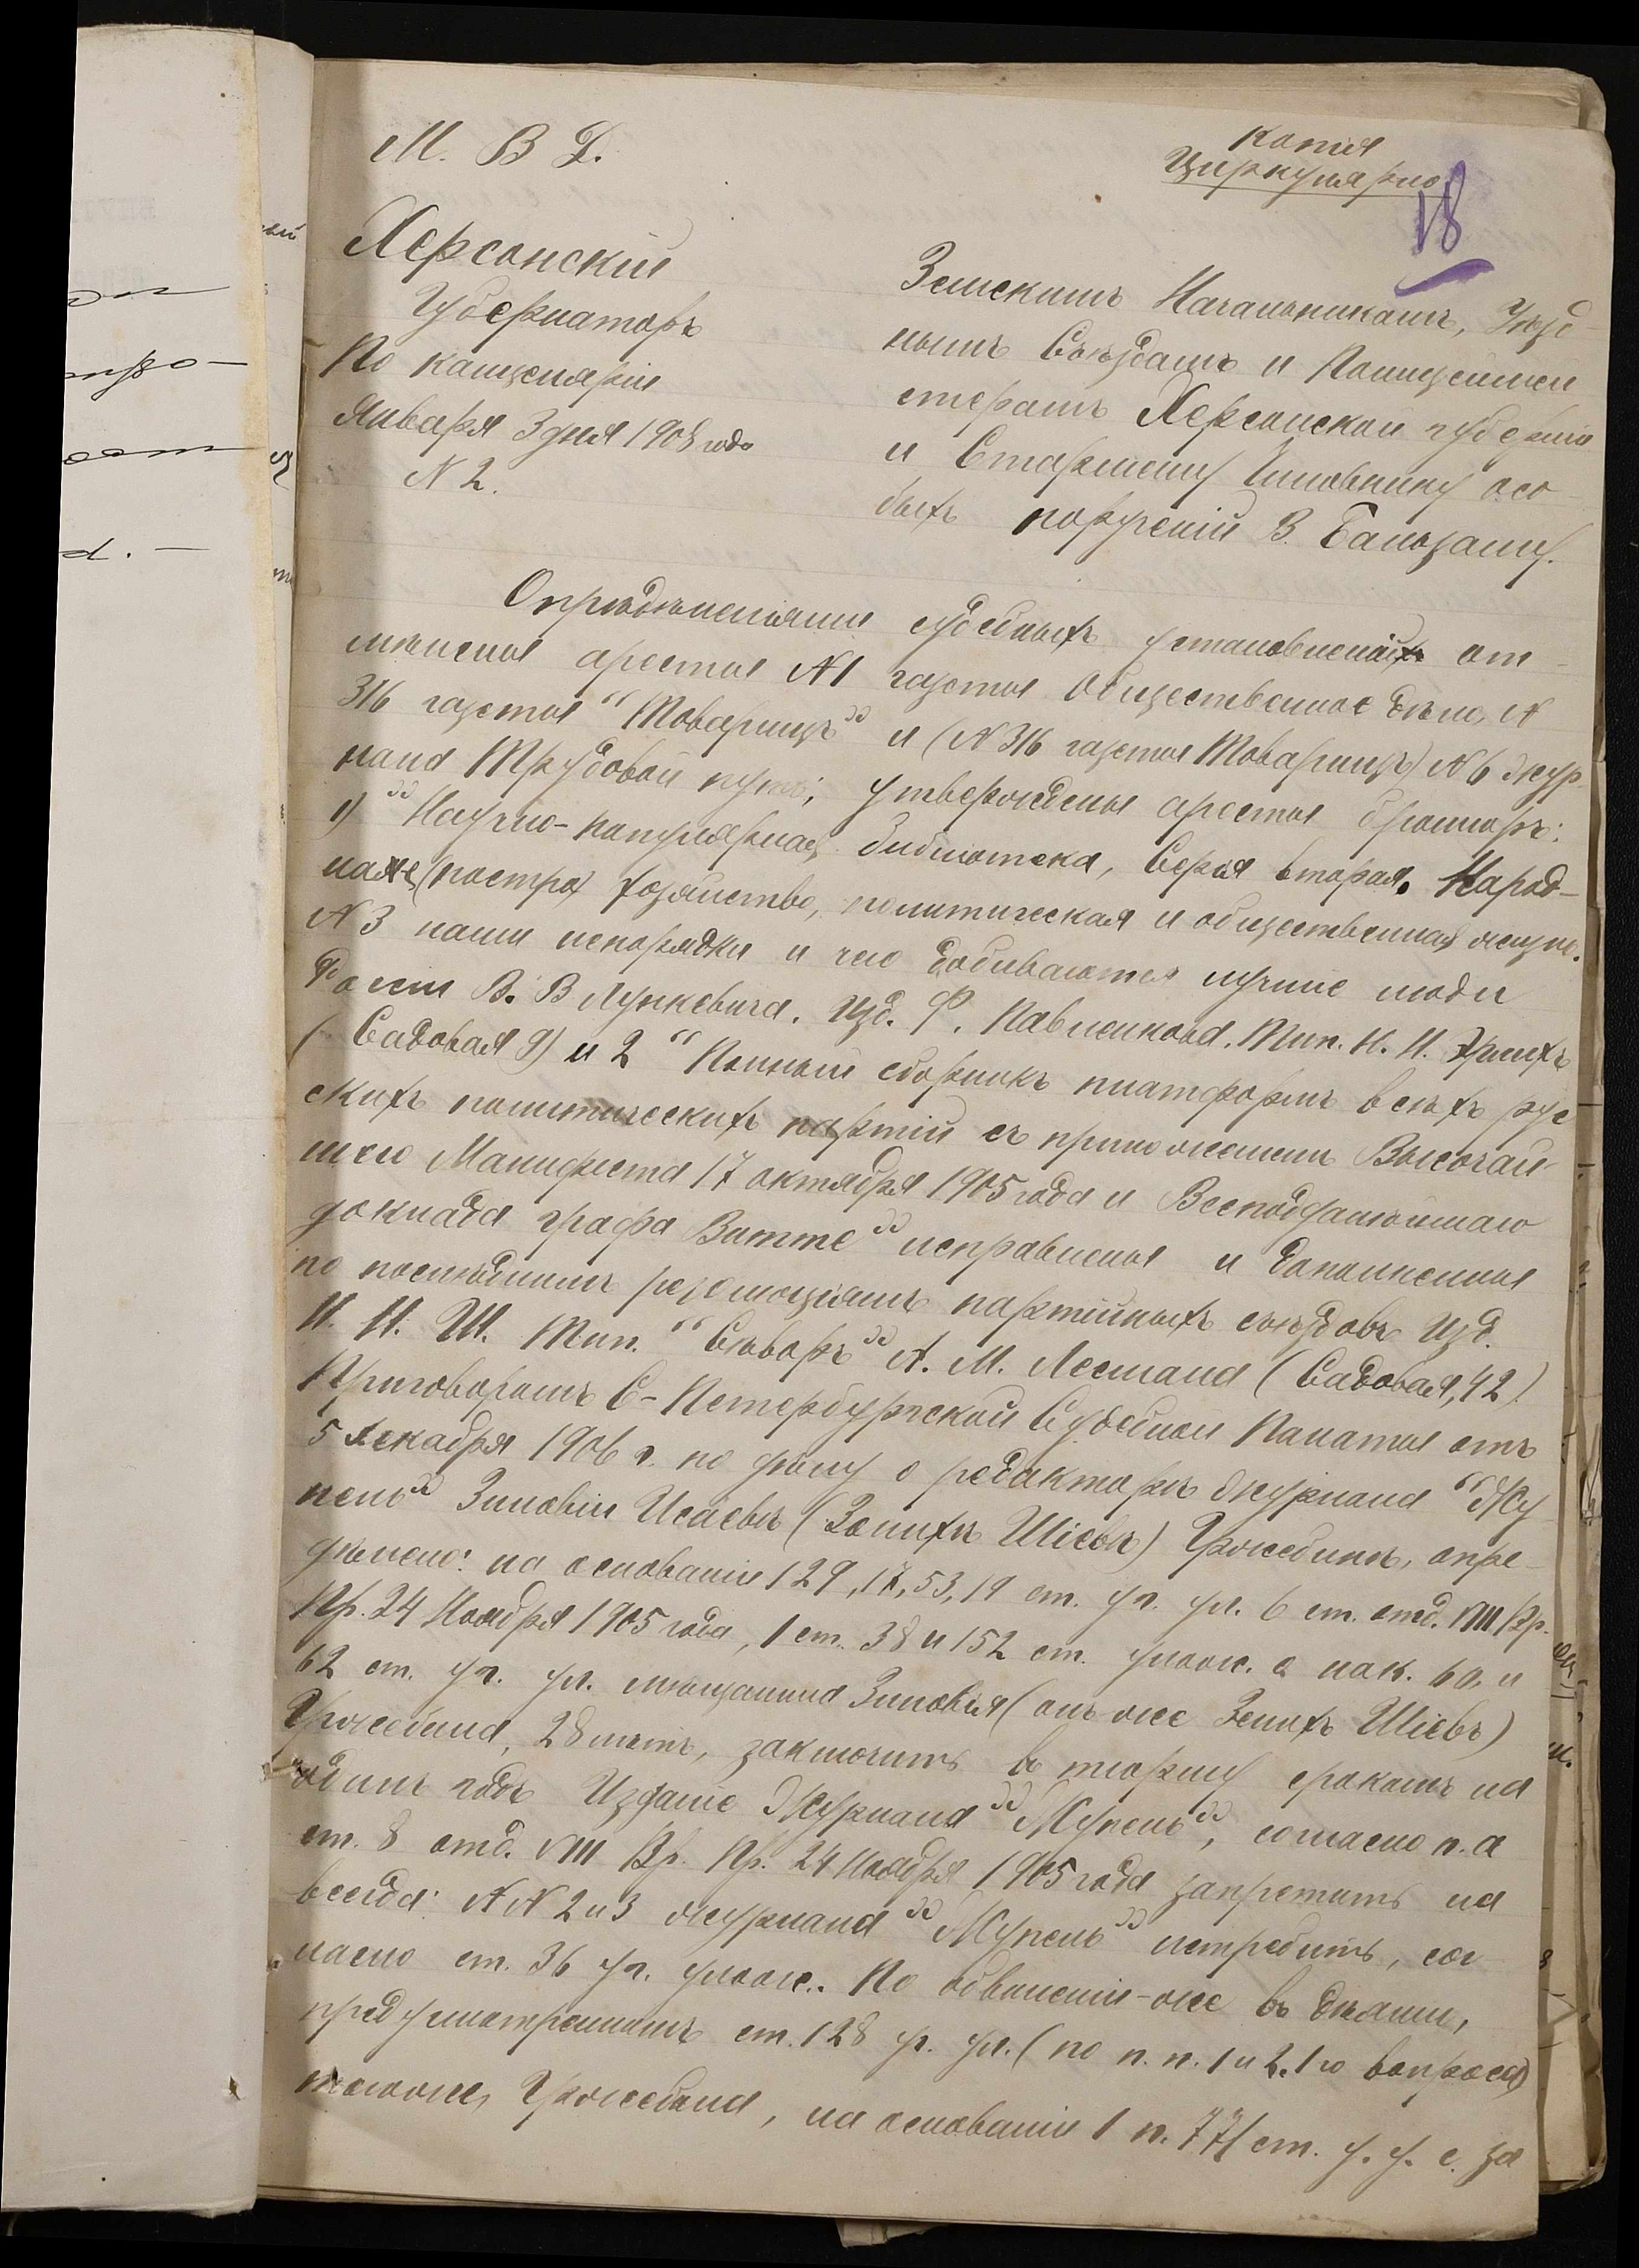 М. В Д.
Копія
Циркулярно
18
Херсонскій
Губернаторъ
По канцеляріи
Января 3 дня 1908 года
N 2.
Земскимъ Начальникамъ, Уѣзд-
нымъ Съѣздамъ и Полицеймей
стерамъ Херсонской губерніи
и Старшему Чиновнику осо-
быхъ порученій В. Бальзаму.
Опредѣленіями судебныхъ установленій от-
мѣнены аресты N 1 газеты Общественное дѣло, N
316 газеты "Товарищъ" и (N 316 газеты Товарищъ) N 6 жур-
нала Трудовой путь; утверждены аресты брошюръ:
1) "Научно-популярная библіотека, Серія вторая. Народ-
ное хозяйство, политическая и общественная жизнь.
N 3 наши непорядки и чего добиваются лучшіе люди
Россіи В. В Лункевича. Изд. Ф. Павленкова. Тип. Н. Н.
(Садовая 9) и 2 "Полный сборникъ платформъ всѣхъ рус
скихъ политическихъ партій съ приложеніемъ Высочай-
шего Манифеста 17 октября 1905 года и Всеподданнѣйшаго
доклада графа Витте" исправленыя и дополненныя
по послѣднимъ резолюціямъ партійныхъ съѣздовъ Изд.
Н. Н. Ш. Тип. "Сѣверъ" А. М. Лесмана (Садовая, 42).
Приговоромъ С-Петербургской Судебной Палаты отъ
5 декабря 1906 г. по дѣлу о редакторѣ журнала "Жу
пелъ" Зиновіи Исаевѣ (Зелихѣ Шіевѣ) Гржебинѣ, опре-
дѣлено: на основаніи 129, 17, 53, 19 ст. уг. ул. 6 ст. отд. VIII Вр.
Пр. 24 Ноября 1905 года, 1 ст. 38 и 152 ст. улож. о нак. 60, и
62 ст. уг. ул. мѣщанина Зиновія (онъ же Зелихъ Шіевъ)
Гржебина, 28 лѣтъ, заключить въ тюрьму срокомъ на
одинъ годъ Изданіе Журнала "Жупелъ", согласно п. а
ст. 8 отд. VIII Вр. Пр. 24 Ноября 1905 года запретить на
всегда: N N 2 и 3 журнала "Жупелъ" истребить, сог-
ласно ст. 36 уг. улож. По обвиненію-же въ дѣяніи,
предусмотренномъ ст. 128 уг. ул. (по п. п. 1 и 2. 1го вопроса)
тогоже, Гржебина, на основаніи 1 п. 771 ст. у. у. с. за